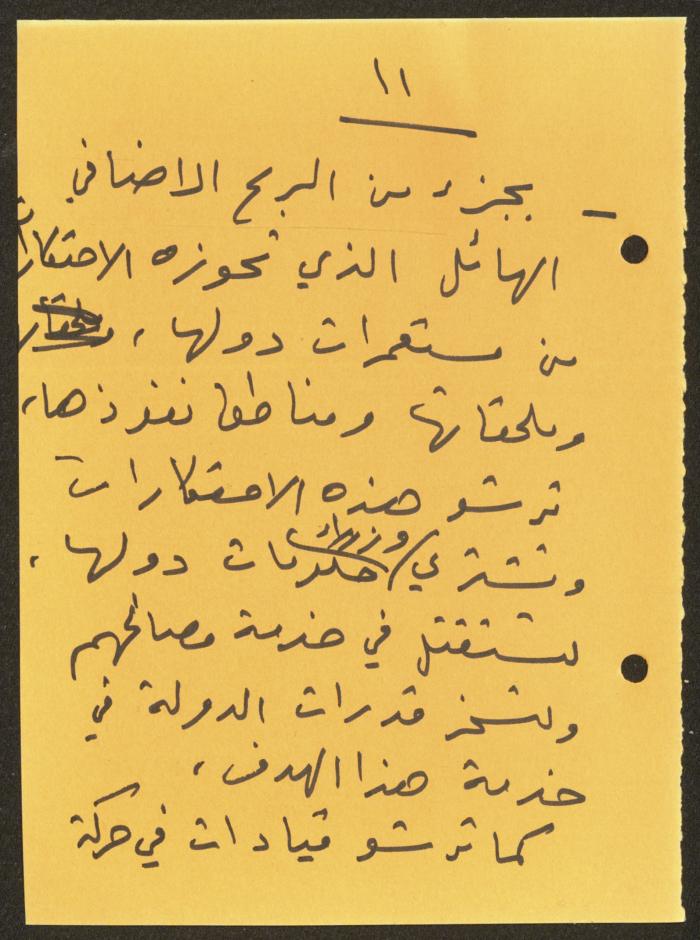 ١١
– بجزء من الربح الاضافي
الهائل الذي تحوزه الاحتكارات
من مستعمرات دولها ،
وملحقاتها ومناطق نفوذها،
ترشو هذه الاحتكارات
وتشتري / وزراء حكومات دولها ،
في خدمة مصالحهم
ولتسخر قدرات الدولة في
خدمة هذا الهدف ،
كما ترشو قيادات في حركة